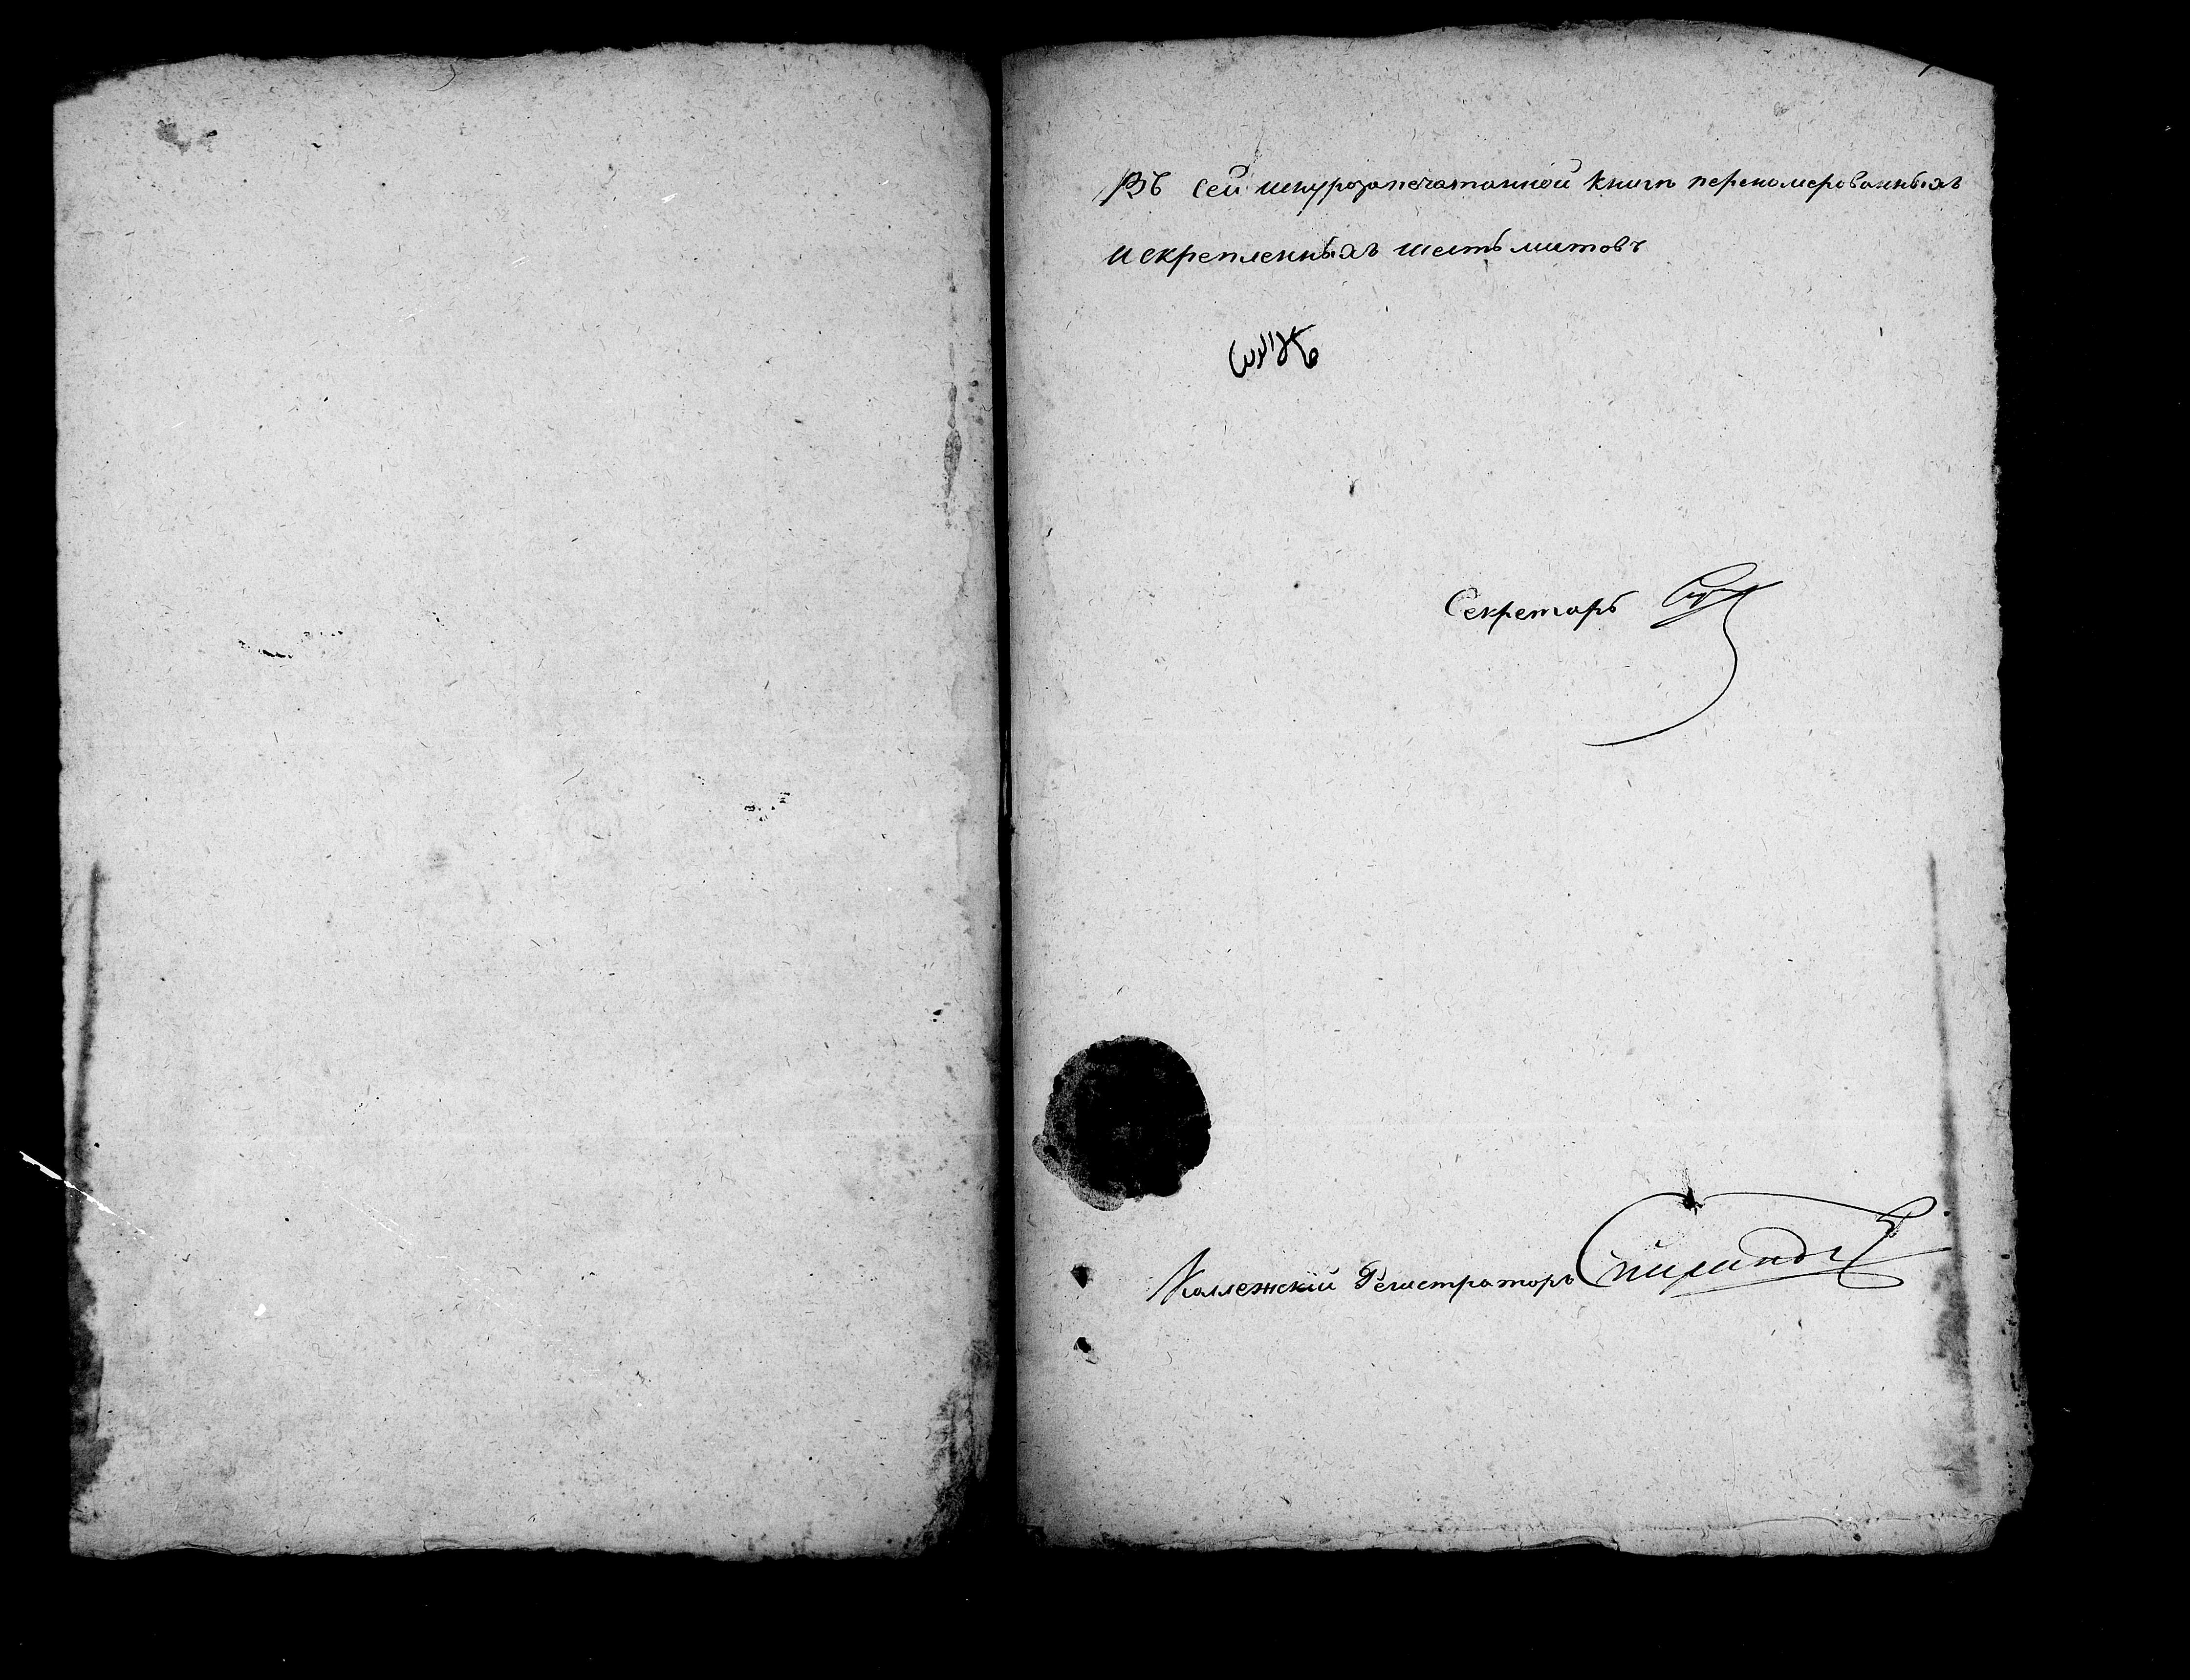 Въ сей шнурозапечатанной книгѣ переномерованныхъ
и скрепленныхъ шесть листовъ
Секретарь
Коллежскій Регистраторъ